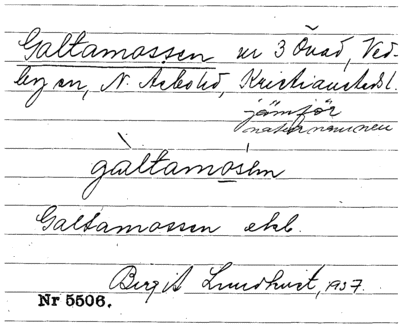 Galtamossen nr 3 Önad, Ved-
byn, N. Åsbohd, Kristianstads l.
jämför
naturnamnen
gàltamosèn
Galtamossen ekb.
Birgit Lundkvist, 1937.
Nr 5506.